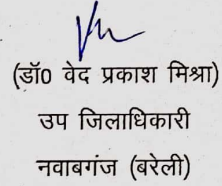 (डॉ0 वेद प्रकाश मिश्रा)
उप जिलाधिकारी
नवाबगंज (बरेली)